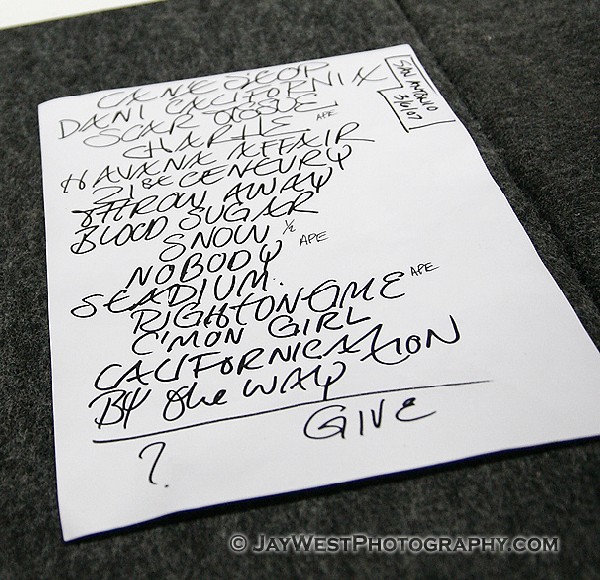 CAN'T STOP
DANI CALIFORNIA
SCAR TISSUE
CHARLIE APE
HAVANA AFFAIR
21ST CENTURY
THROW AWAY
BLOOD SUGAR
SNOW ½
NOBODY APE
STADIUM.
RIGHT ON TIME APE
C'MON GIRL
CALIFORNICATION
BY the WAY
? GIVE
SAN ANTONIO
3/6/07
© JAYWESTPHOTOGRAPHY.COM